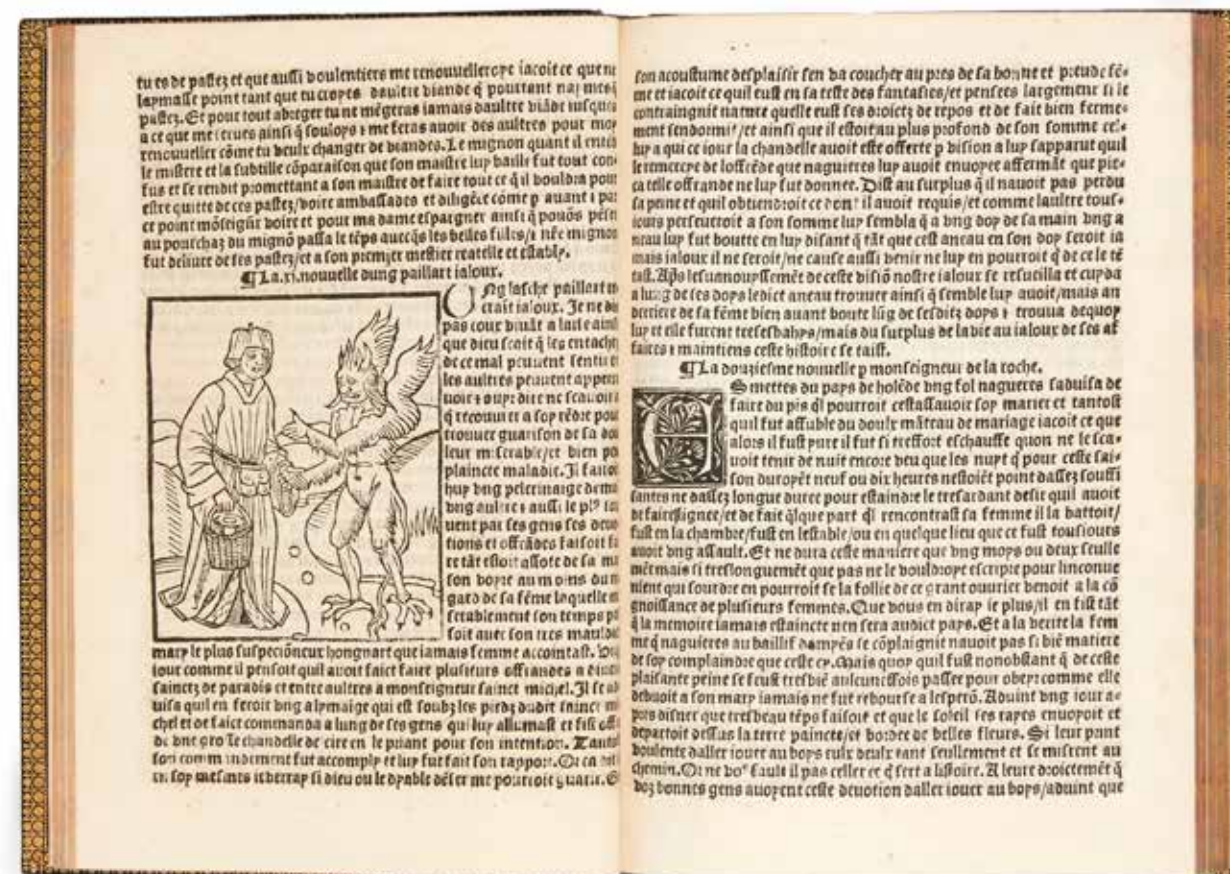 tu es de pastez et que aussi voulentiers me renouvelleroye iacoit ce que ne
laymasse point tant que tu croyes daultre viande q̃ pourtant naymes q̃
pastez. Et pour tout abreger tu ne mẽgeras iamais daultre viãde iusques
a ce que me serues ainsi q̃ souloys ⁊ me feras auoir des aultres pour moy
renouueller cõme tu veulx changer de viandes. Le mignon quant il entẽd
le mistere et la subtille cõparaison que son maistre luy baille fut tout con
fus et se rendit promettant a son maistre de faire tout ce q̃ il vouldra pour
estre quitte de ces pastez/voire ambassades et diligẽce cõme p auant ⁊ par
ce point mõseigũr voire et pour ma dame espargner ainsi q̃ pouõs pẽser
au pourchaz du mignõ passa le tẽps auecq̃s les belles filles/⁊ nrẽ mignon
fut deliure de ses pastez/et a son premier mestier reatelle et establý.
¶ La .xi. nouuelle dung paillart ialoux.
UNg lasche paillart et
craĩt ialoux. Je ne dis
pas coux viuãt a laise ainsi
que dieu scait q̃ les entachez
de ce mal peuuent sentir et
les aultres peuuent apperce
uoir ⁊ ouyr dire ne scauoit a
q̃ recourir a soy rẽdre pour
trouuer guarison de sa dou
leur miserable/et bien peu
plaincte maladie. Jl faisoit
huy vng pelerinaige demain
vng aultre ⁊ aussi le plꝰ sou
uent par ses gens ses deuo
tions et offrãdes faisoit fai
re tãt estoit assote de sa mai
son voyre au moins du re
gard de sa fẽme laquelle mi
serablement son temps pas
soit auec son tres mauldit
mary le plus suspeciõneux hongnart que iamais femme accointast. Vng
iour comme il pensoit quil auoit faict faire plusieurs offrandes a diuers
sainctz de paradis et entre aultres a monseigneur sainct michel. Jl se ad
uisa quil en feroit vng a lymaige qui est soubz les piedz dudit sainct mi
chel et de faict commanda a lung de ses gens qui luy allumast et fist offre
de vne grosse chandelle de cire en le priant pour son intention. Tantost
son commandement fut accomply et luy fut fait son rapport. Or ca dit
il en soy mesmes ie verray si dieu ou le dyable de enfer me pourroit guarir. E
son acoustume desplaisir sen va coucher au pres de sa bonne et preude fẽ-
me et iacoit ce quil eust en sa teste des fantasies/et pensees largement si le
contraingnit nature quelle eust ses droictz de repos et de fait bien ferme-
ment sendormit/et ainsi que il estoit au plus profond de son somme cel-
luy a qui ce iour la chandelle auoit este offerte p vision a luy sapparut quil
le remercye de loffrẽde que naguieres luy auoit enuoyee affermãt que pie-
ca telle offrande ne luy fut donnee. Dist au surplus q̃ il nauoit pas perdu
sa peine et quil obtiendroit ce dont il auoit requis/et comme laultre tous-
iours perseueroit a son somme luy sembla q̃ a vng doy de sa main vng a
neau luy fut boutte en luy disant q̃ tãt que cest aneau en son doy seroit ia
mais ialoux il ne seroit/ne cause aussi venir ne luy en pourroit q̃ de ce le tẽ
tast. Aps lesuanouyssemẽt de ceste visiõ nostre ialoux se resueilla et cuyda
a lung de ses doys ledict aneau trouuer ainsi q̃ semble luy auoit/mais au
derriere de sa fẽme bien auant boute lũg de sesditz doys ⁊ trouua dequoy
luy et elle furent tresesbahys/mais du surplus de la vie au ialoux de ses af
faires ⁊ maintiens ceste histoire se taist.
¶ La douziesme nouuelle p monseigneur de la roche.
ES mettes du pays de holẽde vng fol nagueres saduisa de
faire du pis q̃l pourroit cestassauoir soy marier et tantost
quil fut affuble du doulx mãteau de mariage iacoit ce que
alors il fust yuer il fut si treffort eschauffe quon ne le sca-
uoit tenir de nuit encore veu que les nuyt q̃ pour ceste sai-
son duroyẽt neuf ou dix heures nestoiẽt point dassez souffi
santes ne dassez longue duree pour estaindre le tresardant desir quil auoit
de faire lignee/et de fait q̃lque part q̃l rencontrast sa femme il la battoit/
fust en la chambre/fust en lestable/ou en quelque lieu que ce fust tousiours
auoit vng assault. Et ne dura ceste maniere que vng moys ou deux seulle
mẽt mais si treslonguemẽt que pas ne le vouldroye escripre pour linconue
nient qui sourdre en pourroit se la follie de ce grant ouurier venoit a la cõ
gnoissance de plusieurs femmes. Que vous en diray ie plus/il en fist tãt
q̃ la memoire iamais estaincte nen sera audict pays. Et a la verite la fem
me q̃ naguieres au baillif damyẽs se cõplaignit nauoit pas si biẽ matiere
de soy complaindre que ceste cy. Mais quoy quil fust nonobstant q̃ de ceste
plaisante peine se feust tresbiẽ aulcunessfois passer pour obeyr comme elle
debuoit a son mary iamais ne fut rebourse a lesperõ. Aduint vng iour a-
pres disner que tresbeau tẽps faisoit et que le soleil ses rayes enuoyoit et
departoit dessus la terre paincte/et bordee de belles fleurs. Si leur print
voulente daller iouer au boys eulx deulx tant seullement et se misrent au
chemin. Or ne voꝰ fault il pas celler ce q̃ sert a listoire. A leure droictemẽt q̃
voz bonnes gens auoyent ceste deuotion daller iouer au boys/aduint que